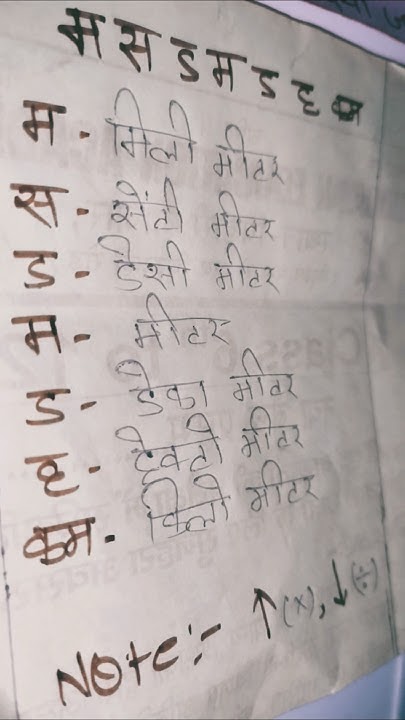 म स ड म ड ह कम
म - मिली मीटर
स - सेंटी मीटर
ड - डेसी मीटर
म - मीटर
ड - डेका मीटर
ह - हेक्टो मीटर
कम - किलो मीटर
Note:- ↑(×), ↓(÷)